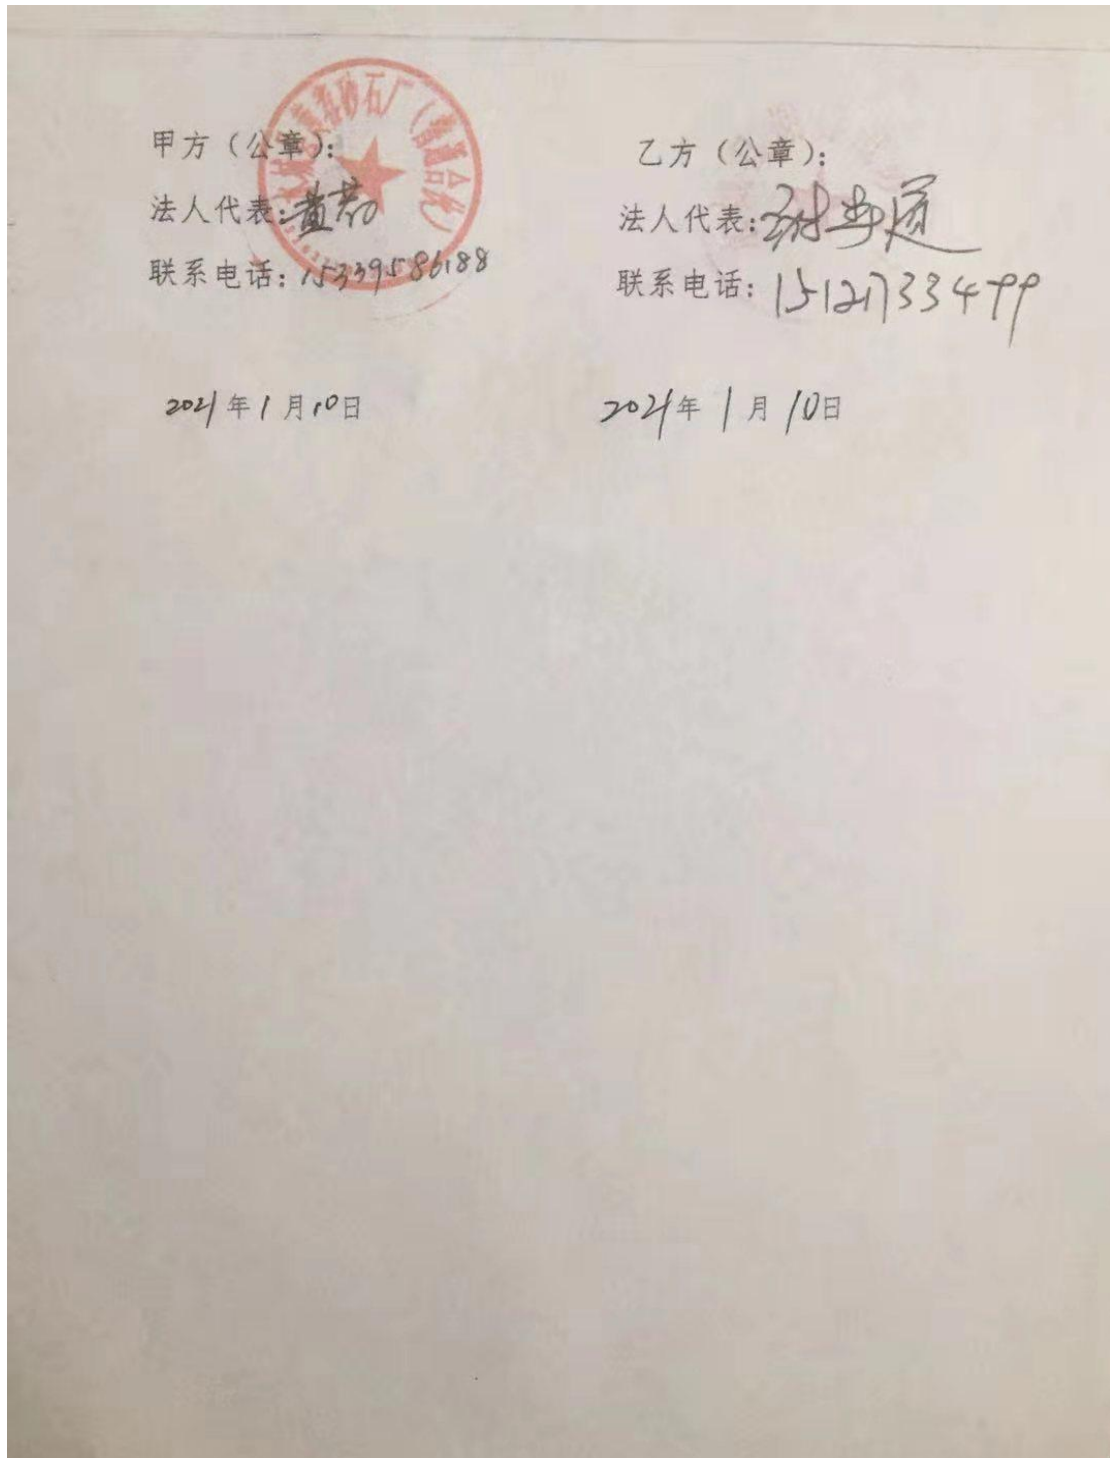 甲方（公章）：
法人代表：黄
联系电话：15339586188
2021年1月10日
乙方（公章）：
法人代表：谢
联系电话：15121733499
2021年1月10日
砂石厂（普通合伙）